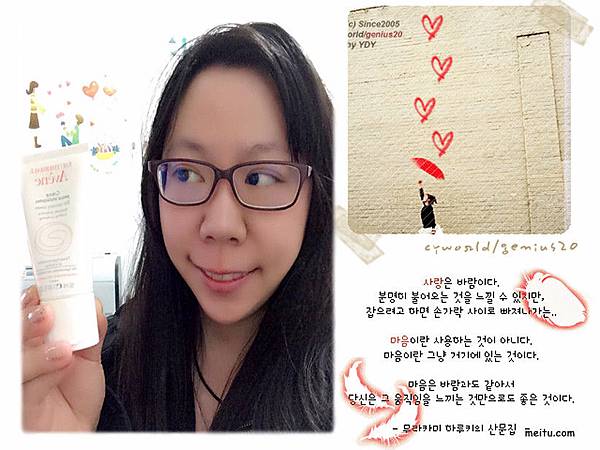 EAU THERMALE
Avène
Crème
(c) Since2005
world/genius20
by YDY
cyworld/genius20
사랑은 바람이다.
분명히 불어오는 것을 느낄 수 있지만,
잡으려고 하면 손가락 사이로 빠져나가는..
마음이란 사용하는 것이 아니다.
마음이란 그냥 거기에 있는 것이다.
마음은 바람과도 같아서
당신은 그 움직임을 느끼는 것만으로도 좋은 것이다.
- 무라카미 하루키의 산문집 -
meitu.com